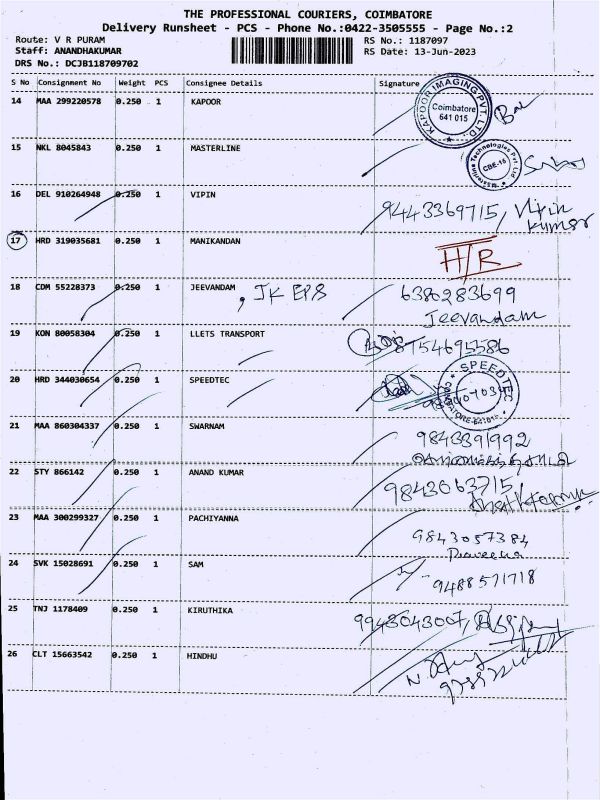 THE PROFESSIONAL COURIERS, COIMBATORE
Delivery Runsheet - PCS - Phone No.:0422-3505555 - Page No.:2
Route: V R PURAM RS No.: 1187097
Staff: ANANDHAKUMAR RS Date: 13-Jun-2023
DRS No.: DCJB118709702
S No Consignment No Weight PCS Consignee Details Signature
14 MAA 299220578 0.250 1 KAPOOR KAPOOR IMAGING PVT. LTD. Coimbatore 641 015
15 NKL 8045843 0.250 1 MASTERLINE Masterline Technologies Pvt. Ltd CBE-15
16 DEL 910264948 0.250 1 VIPIN 9443369715, Vipin kumar
17 HRD 319035681 0.250 1 MANIKANDAN H/R
18 CDM 55228373 0.250 1 JEEVANDAM , JK EPS 6380283699
Jeevandam
19 KON 80058304 0.250 1 LLETS TRANSPORT 8754695586
20 HRD 344030654 0.250 1 SPEEDTEC SPEEDTEC
21 MAA 860304337 0.250 1 SWARNAM 9843391992
22 STY 866142 0.250 1 ANAND KUMAR 9843063715,
23 MAA 300299327 0.250 1 PACHIYANNA 9843057384
Praveena
24 SVK 15028691 0.250 1 SAM 9488571718
25 TNJ 1178409 0.250 1 KIRUTHIKA 9943043007,
26 CLT 15663542 0.250 1 HINDHU